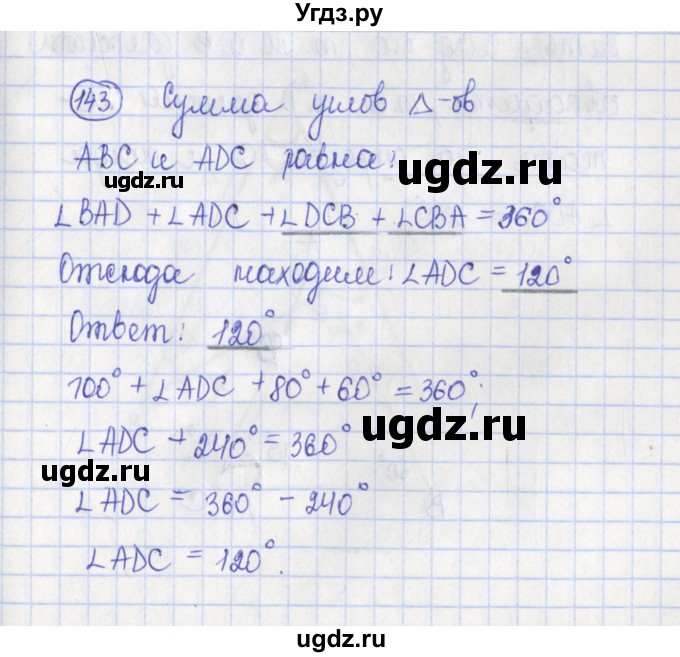 Угдз.ру
143 Сумма углов Δ-ов
ABC и ADC равна:
ugdz.ru
ugdz.ru
∠BAD + ∠ADC + ∠DCB + ∠CBA = 360°
Отсюда находим: ∠ADC = 120°
Ответ: 120°
100° + ∠ADC + 80° + 60° = 360°;
ugdz.ru
∠ADC + 240° = 360°
ugdz.ru
∠ADC = 360° - 240°
∠ADC = 120°.
ugdz.ru